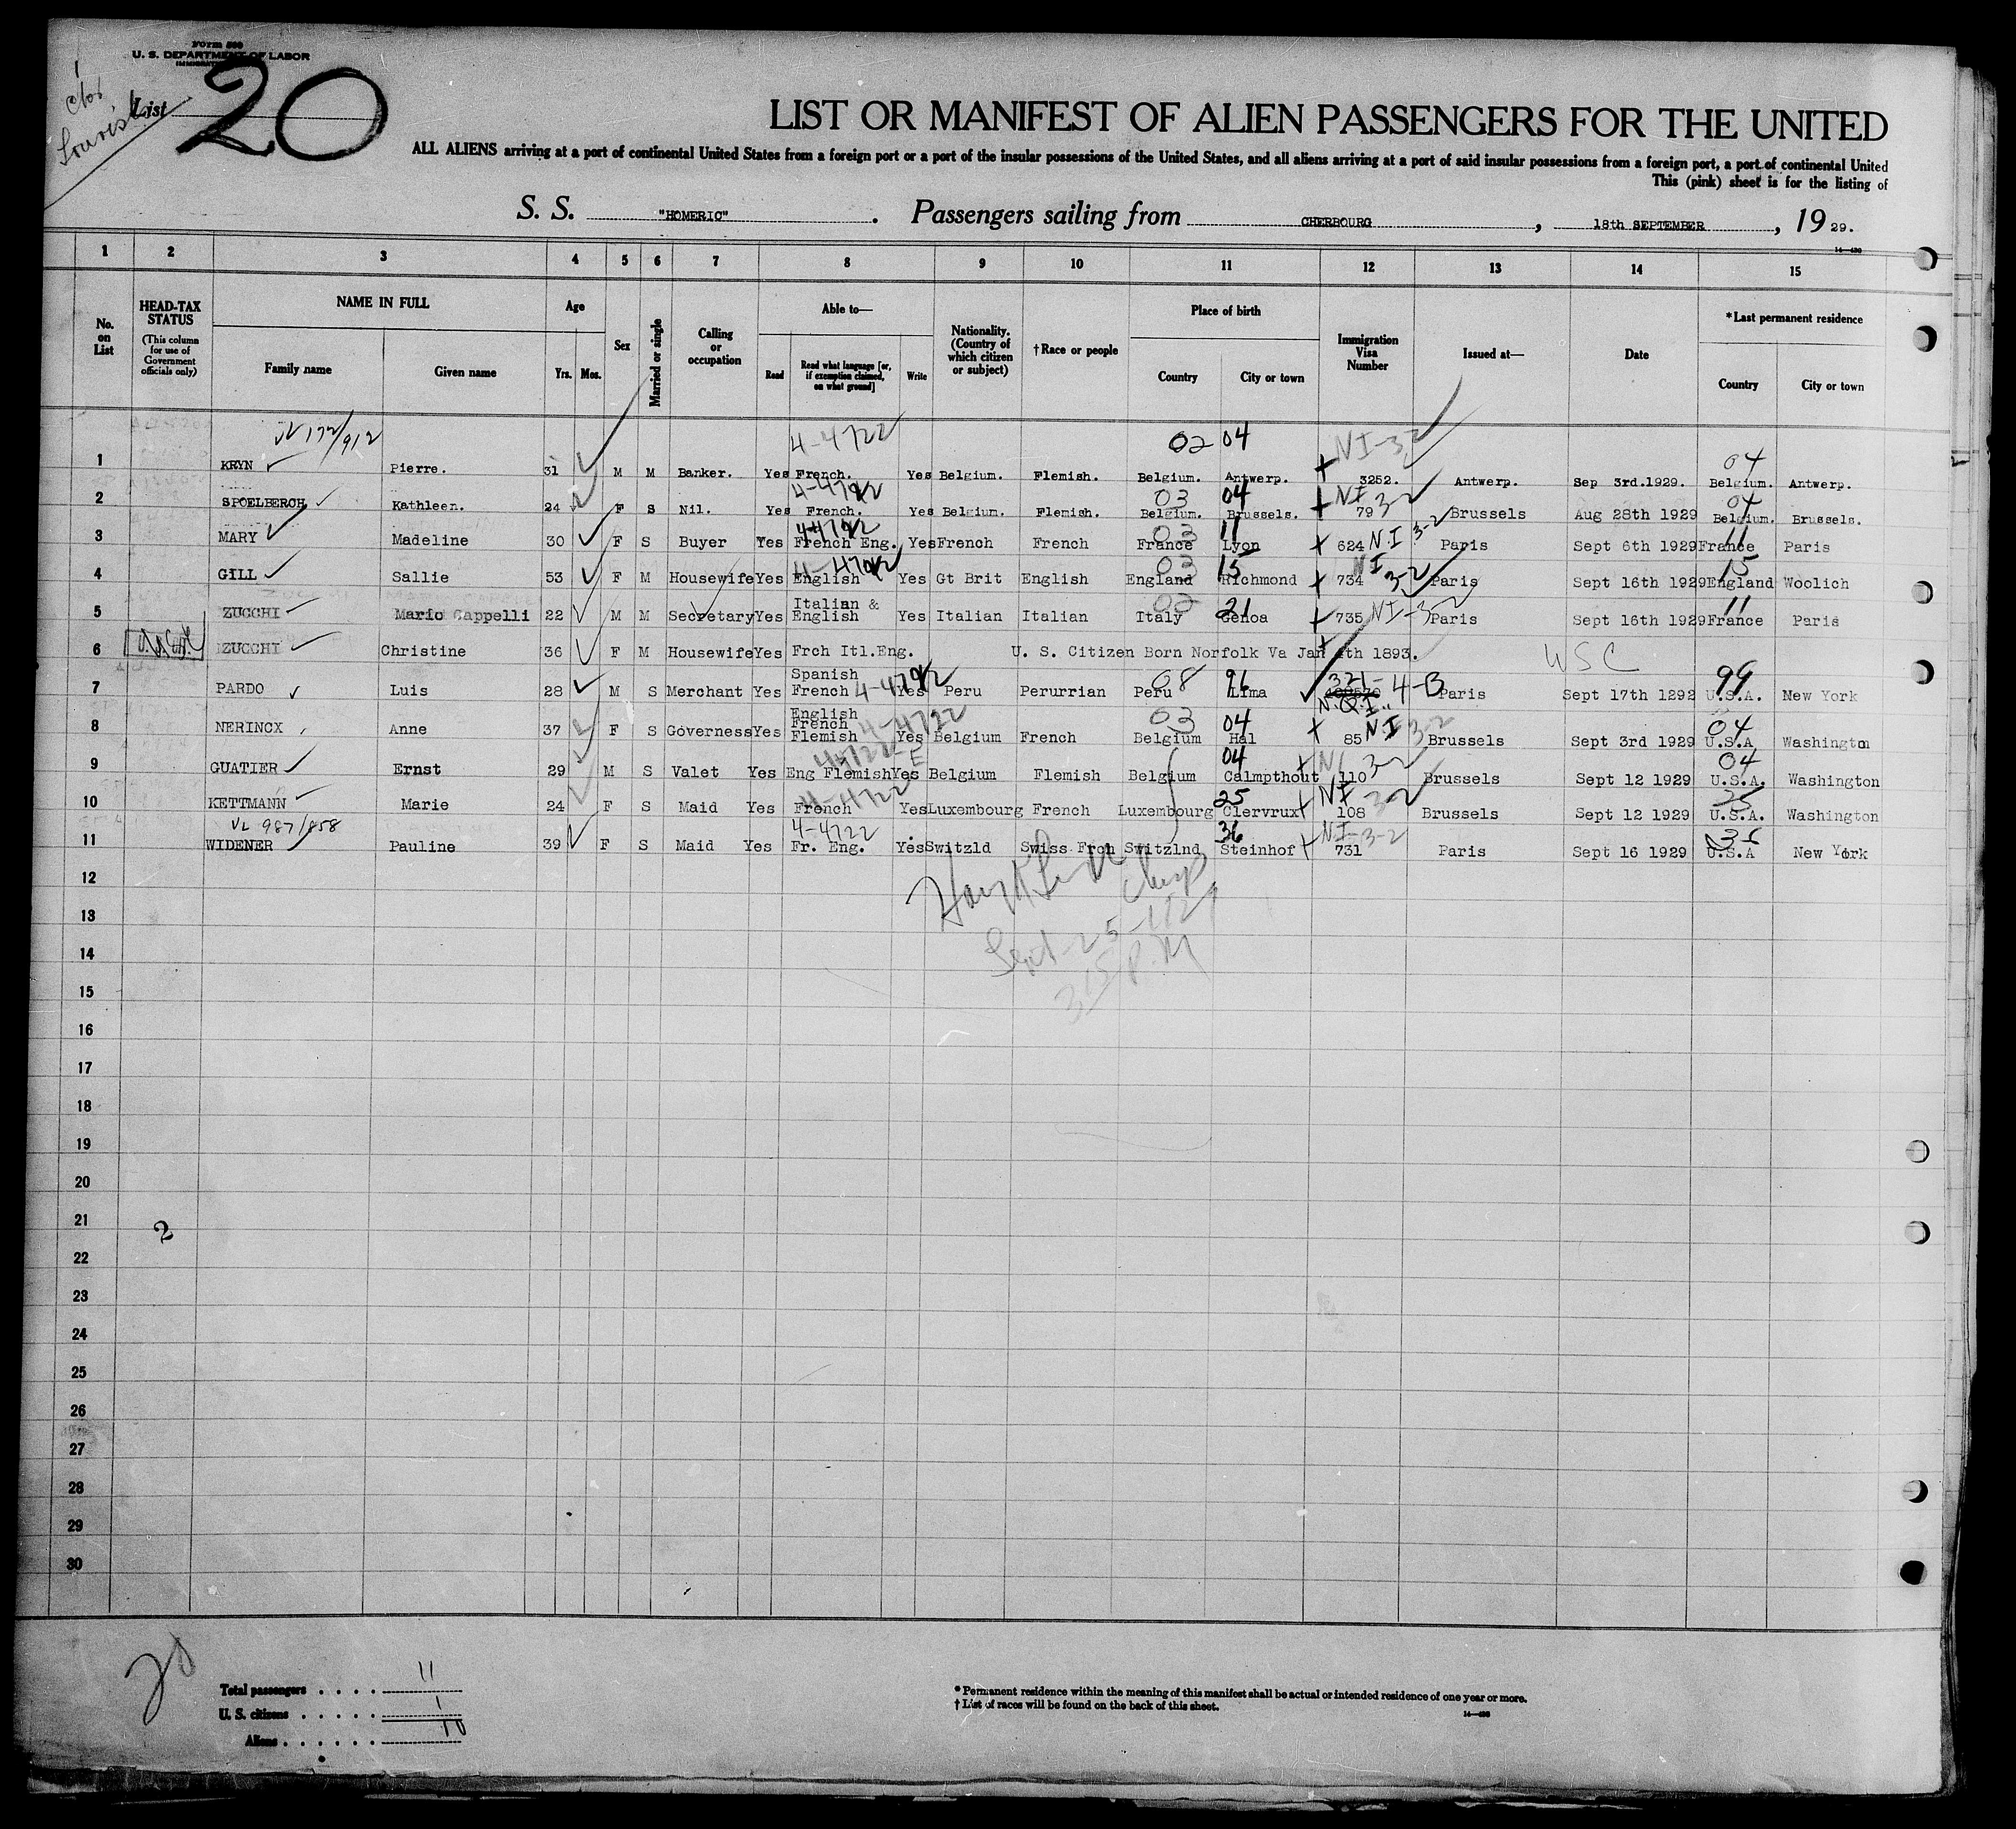 Form 500
U. S. DEPARTMENT OF LABOR
List 20
LIST OR MANIFEST OF ALIEN PASSENGERS FOR THE UNITED
ALL ALIENS arriving at a port of continental United States from a foreign port or a port of the insular possessions of the United States, and all aliens arriving at a port of said insular possessions from a foreign port, a port of continental United
This (pink) sheet is for the listing of
S. S. "HOMERIC". Passengers sailing from CHERBOURG, 18th SEPTEMBER, 19 29.
1 2 3 4 5 6 7 8 9 10 11 12 13 14 15
No. on List
HEAD-TAX STATUS (This column for use of Government officials only)
NAME IN FULL
Family name Given name
Age
Yrs. Mos.
Sex
Married or single
Calling or occupation
Able to—
Read Read what language [or, if exemption claimed, on what ground] Write
Nationality. (Country of which citizen or subject)
†Race or people
Place of birth
Country City or town
Immigration Visa Number
Issued at—
Date
*Last permanent residence
Country City or town
4-4722 02 04 NI-3-2 04
1 KRYN Pierre. 31 M M Banker. Yes French. Yes Belgium. Flemish. Belgium. Antwerp. 3252. Antwerp. Sep 3rd.1929. Belgium. Antwerp.
2 SPOELBERCH Kathleen. 24 F S Nil. Yes French. Yes Belgium. Flemish. Belgium. 03 Brussels. 04 79 NI 3-2 Brussels Aug 28th 1929 Belgium. 04 Brussels.
3 MARY Madeline 30 F S Buyer Yes French Eng. Yes French French France 03 Lyon 11 624 N.I 3-2 Paris Sept 6th 1929 France 11 Paris
4 GILL Sallie 53 F M Housewife Yes English Yes Gt Brit English England 03 Richmond 15 734 NI 3-2 Paris Sept 16th 1929 England 15 Woolich
5 ZUCCHI Mario Cappelli 22 M M Secretary Yes Italian & English Yes Italian Italian Italy 02 Genoa 21 735 NI-3-2 Paris Sept 16th 1929 France 11 Paris
6 ZUCCHI Christine 36 F M Housewife Yes Frch Itl.Eng. U. S. Citizen Born Norfolk Va Jan 4th 1893. WSC
7 PARDO Luis 28 M S Merchant Yes Spanish French 4-4722 Yes Peru Perurrian Peru 08 Lima 96 321- 4-B N.Q.I.. Paris Sept 17th 1292 U.S.A. 99 New York
8 NERINCX Anne 37 F S Governess Yes English French Flemish 4-4722 Yes Belgium French Belgium 03 Hal 04 85 NI 3-2 Brussels Sept 3rd 1929 U.S.A 04 Washington
9 GUATIER Ernst 29 M S Valet Yes Eng Flemish Yes Belgium Flemish Belgium Calmpthout 04 110 NI 3-2 Brussels Sept 12 1929 U.S.A. 04 Washington
10 KETTMANN Marie 24 F S Maid Yes French 4-4722 Yes Luxembourg French Luxembourg Clervrux 25 108 NI 3-2 Brussels Sept 12 1929 U.S.A. 25 Washington
VL 987/858 4-4722 36 NI-3-2
11 WIDENER Pauline 39 F S Maid Yes Fr. Eng. Yes Switzld Swiss Frch Switzlnd Steinhof 731 Paris Sept 16 1929 U.S.A New York
12
13
14
15
16
17
18
19
20
21 2
22
23
24
25
26
27
28
29
30
20
Total passengers 11
U. S. citizens 1
Aliens 10
* Permanent residence within the meaning of this manifest shall be actual or intended residence of one year or more.
† List of races will be found on the back of this sheet.